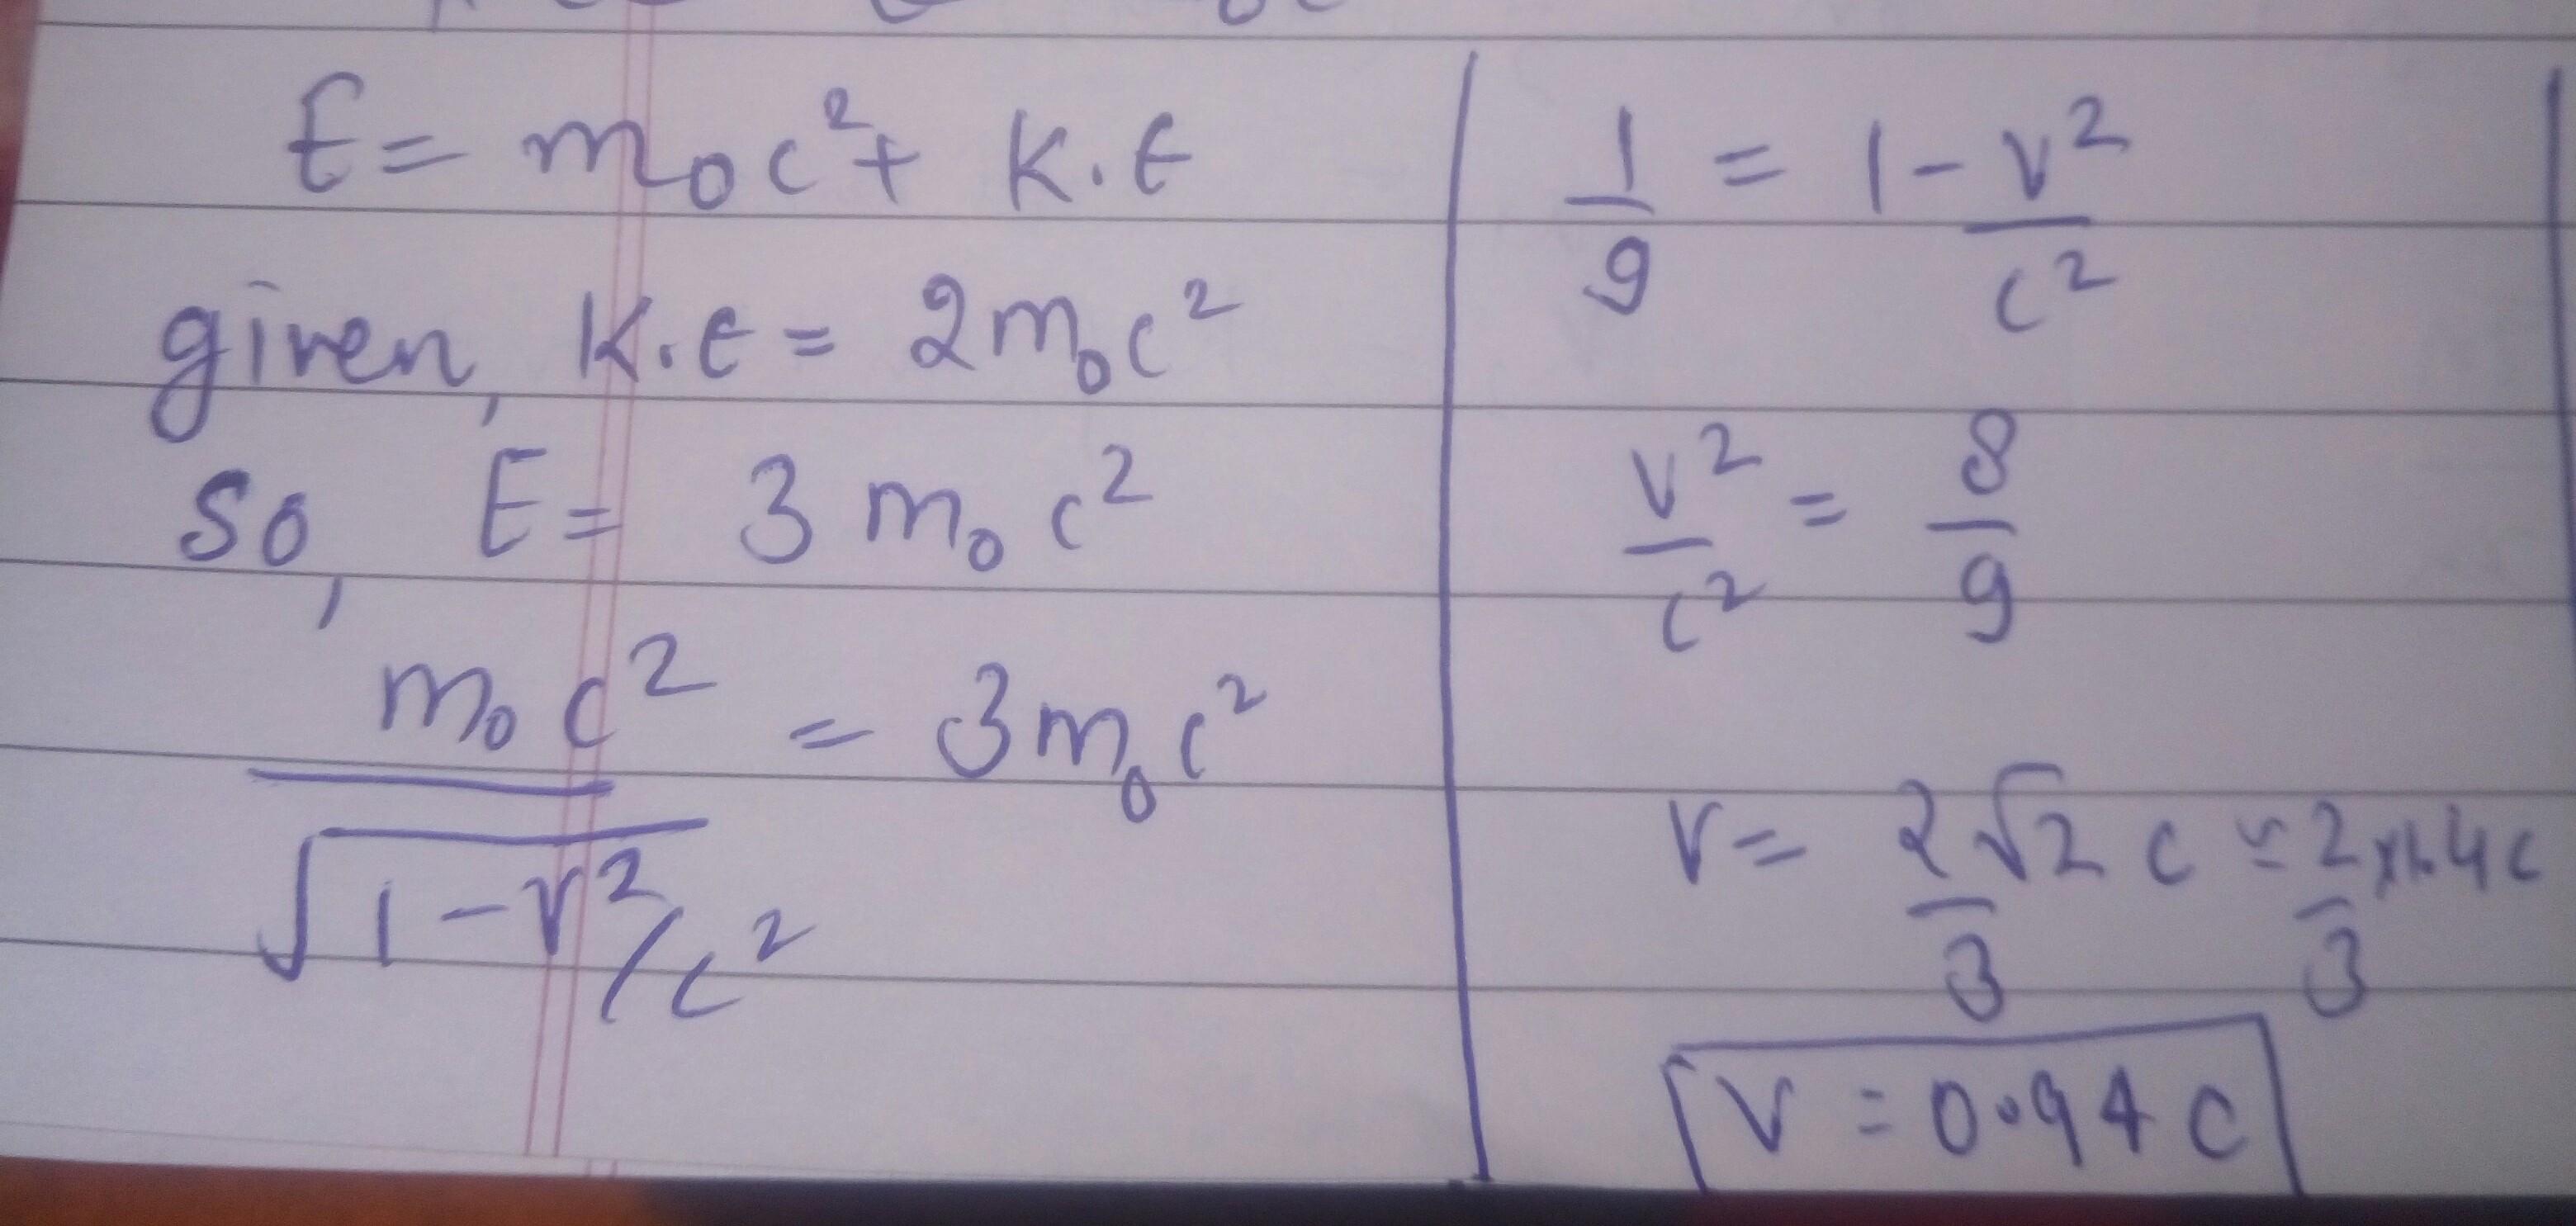 E = m₀c² + K.E
given, K.E = 2m₀c²
So, E = 3 m₀c²
m₀c² / √(1 - v²/c²) = 3m₀c²
1/9 = 1 - v²/c²
v²/c² = 8/9
v = 2√2/3 c = 2/3 × 1.4 c
v = 0.94 c